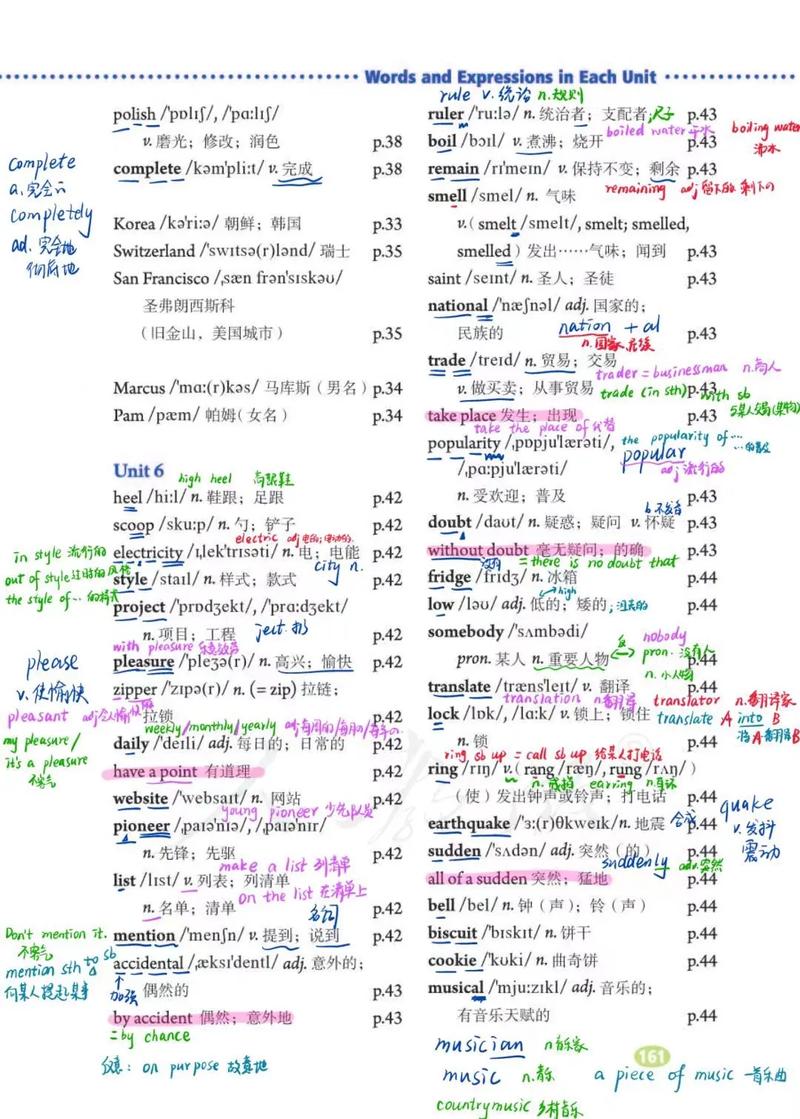 Words and Expressions in Each Unit
polish /'pɒlɪʃ/, /'pɑːlɪʃ/
v. 磨光；修改；润色 p.38
complete /kəm'pliːt/ v. 完成 p.38
complete
a. 完全的
completely
ad. 完全地
彻底地
Korea /kə'riːə/ 朝鲜；韩国 p.33
Switzerland /'swɪtsə(r)lənd/ 瑞士 p.35
San Francisco /ˌsæn frən'sɪskəʊ/
圣弗朗西斯科
（旧金山，美国城市） p.35
Marcus /'mɑː(r)kəs/ 马库斯（男名） p.34
Pam /pæm/ 帕姆（女名） p.34
Unit 6
high heel 高跟鞋
heel /hiːl/ n. 鞋跟；足跟 p.42
scoop /skuːp/ n. 勺；铲子 p.42
electric adj 电的；电动的.
electricity /ɪˌlek'trɪsəti/ n. 电；电能 p.42
city n.
in style 流行的
out of style 过时的
the style of … 的样式
风格
style /staɪl/ n. 样式；款式 p.42
project /'prɒdʒekt/, /'prɑːdʒekt/
n. 项目；工程 p.42
ject. 扔
with pleasure 乐意效劳
pleasure /'pleʒə(r)/ n. 高兴；愉快 p.42
please
v. 使愉快
pleasant adj 令人愉快的
my pleasure /
it's a pleasure
不客气
zipper /'zɪpə(r)/ n. (= zip) 拉链；
拉锁 p.42
weekly/monthly/yearly adj 每周的/每月的/每年的.
daily /'deɪli/ adj. 每日的；日常的 p.42
have a point 有道理 p.42
website /'websaɪt/ n. 网站 p.42
young pioneer 少先队员
pioneer /ˌpaɪə'nɪə/, /ˌpaɪə'nɪr/
n. 先锋；先驱 p.42
make a list 列清单
list /lɪst/ v. 列表；列清单
on the list 在清单上
n. 名单；清单 p.42
名词
mention /'menʃn/ v. 提到；说到 p.42
Don't mention it.
不客气
mention sth to sb
向某人提起某事
accidental /ˌæksɪ'dentl/ adj. 意外的；
偶然的 p.43
加强
by accident 偶然；意外地 p.43
= by chance
反意: on purpose 故意地
rule v. 统治 n. 规则
ruler /'ruːlə/ n. 统治者；支配者 尺子 p.43
boiled water 开水
boiling water
沸水
boil /bɔɪl/ v. 煮沸；烧开 p.43
remain /rɪ'meɪn/ v. 保持不变；剩余 p.43
remaining adj 留下的, 剩下的
smell /smel/ n. 气味
v. (smelt /smelt/, smelt; smelled,
smelled) 发出……气味；闻到 p.43
saint /seɪnt/ n. 圣人；圣徒 p.43
national /'næʃnəl/ adj. 国家的；
民族的 p.43
nation + al
n. 国家, 民族
trade /treɪd/ n. 贸易；交易
trader = businessman n. 商人
v. 做买卖；从事贸易 p.43
trade (in sth) with sb
与某人交易(某物)
take place 发生；出现 p.43
take the place of 代替
popularity /ˌpɒpju'lærəti/,
/ˌpɑːpju'lærəti/
n. 受欢迎；普及 p.43
the popularity of …
popular
adj 流行的
b 不发音
doubt /daʊt/ n. 疑惑；疑问 v. 怀疑 p.43
without doubt 毫无疑问；的确 p.43
= there is no doubt that
fridge /frɪdʒ/ n. 冰箱 p.44
high
low /ləʊ/ adj. 低的；矮的; 沮丧的 p.44
somebody /'sʌmbədi/
pron. 某人 n. 重要人物 p.44
反
nobody
pron. 没有人
n. 小人物
translate /træns'leɪt/ v. 翻译 p.44
translation n. 翻译
translator n. 翻译家
translate A into B
将A翻译B
lock /lɒk/, /lɑːk/ v. 锁上；锁住
n. 锁 p.44
ring sb up = call sb up 给某人打电话
ring /rɪŋ/ v. (rang /ræŋ/, rung /rʌŋ/)
n. 戒指 earring n. 耳环
（使）发出钟声或铃声；打电话 p.44
earthquake /'ɜː(r)θkweɪk/ n. 地震 合成 p.44
quake
v. 发抖
震动
sudden /'sʌdən/ adj. 突然（的） p.44
suddenly adv. 突然
all of a sudden 突然；猛地 p.44
bell /bel/ n. 钟（声）；铃（声） p.44
biscuit /'bɪskɪt/ n. 饼干 p.44
cookie /'kʊki/ n. 曲奇饼 p.44
musical /'mjuːzɪkl/ adj. 音乐的；
有音乐天赋的 p.44
musician n 音乐家
music n. 音乐 a piece of music 一首乐曲
country music 乡村音乐
161